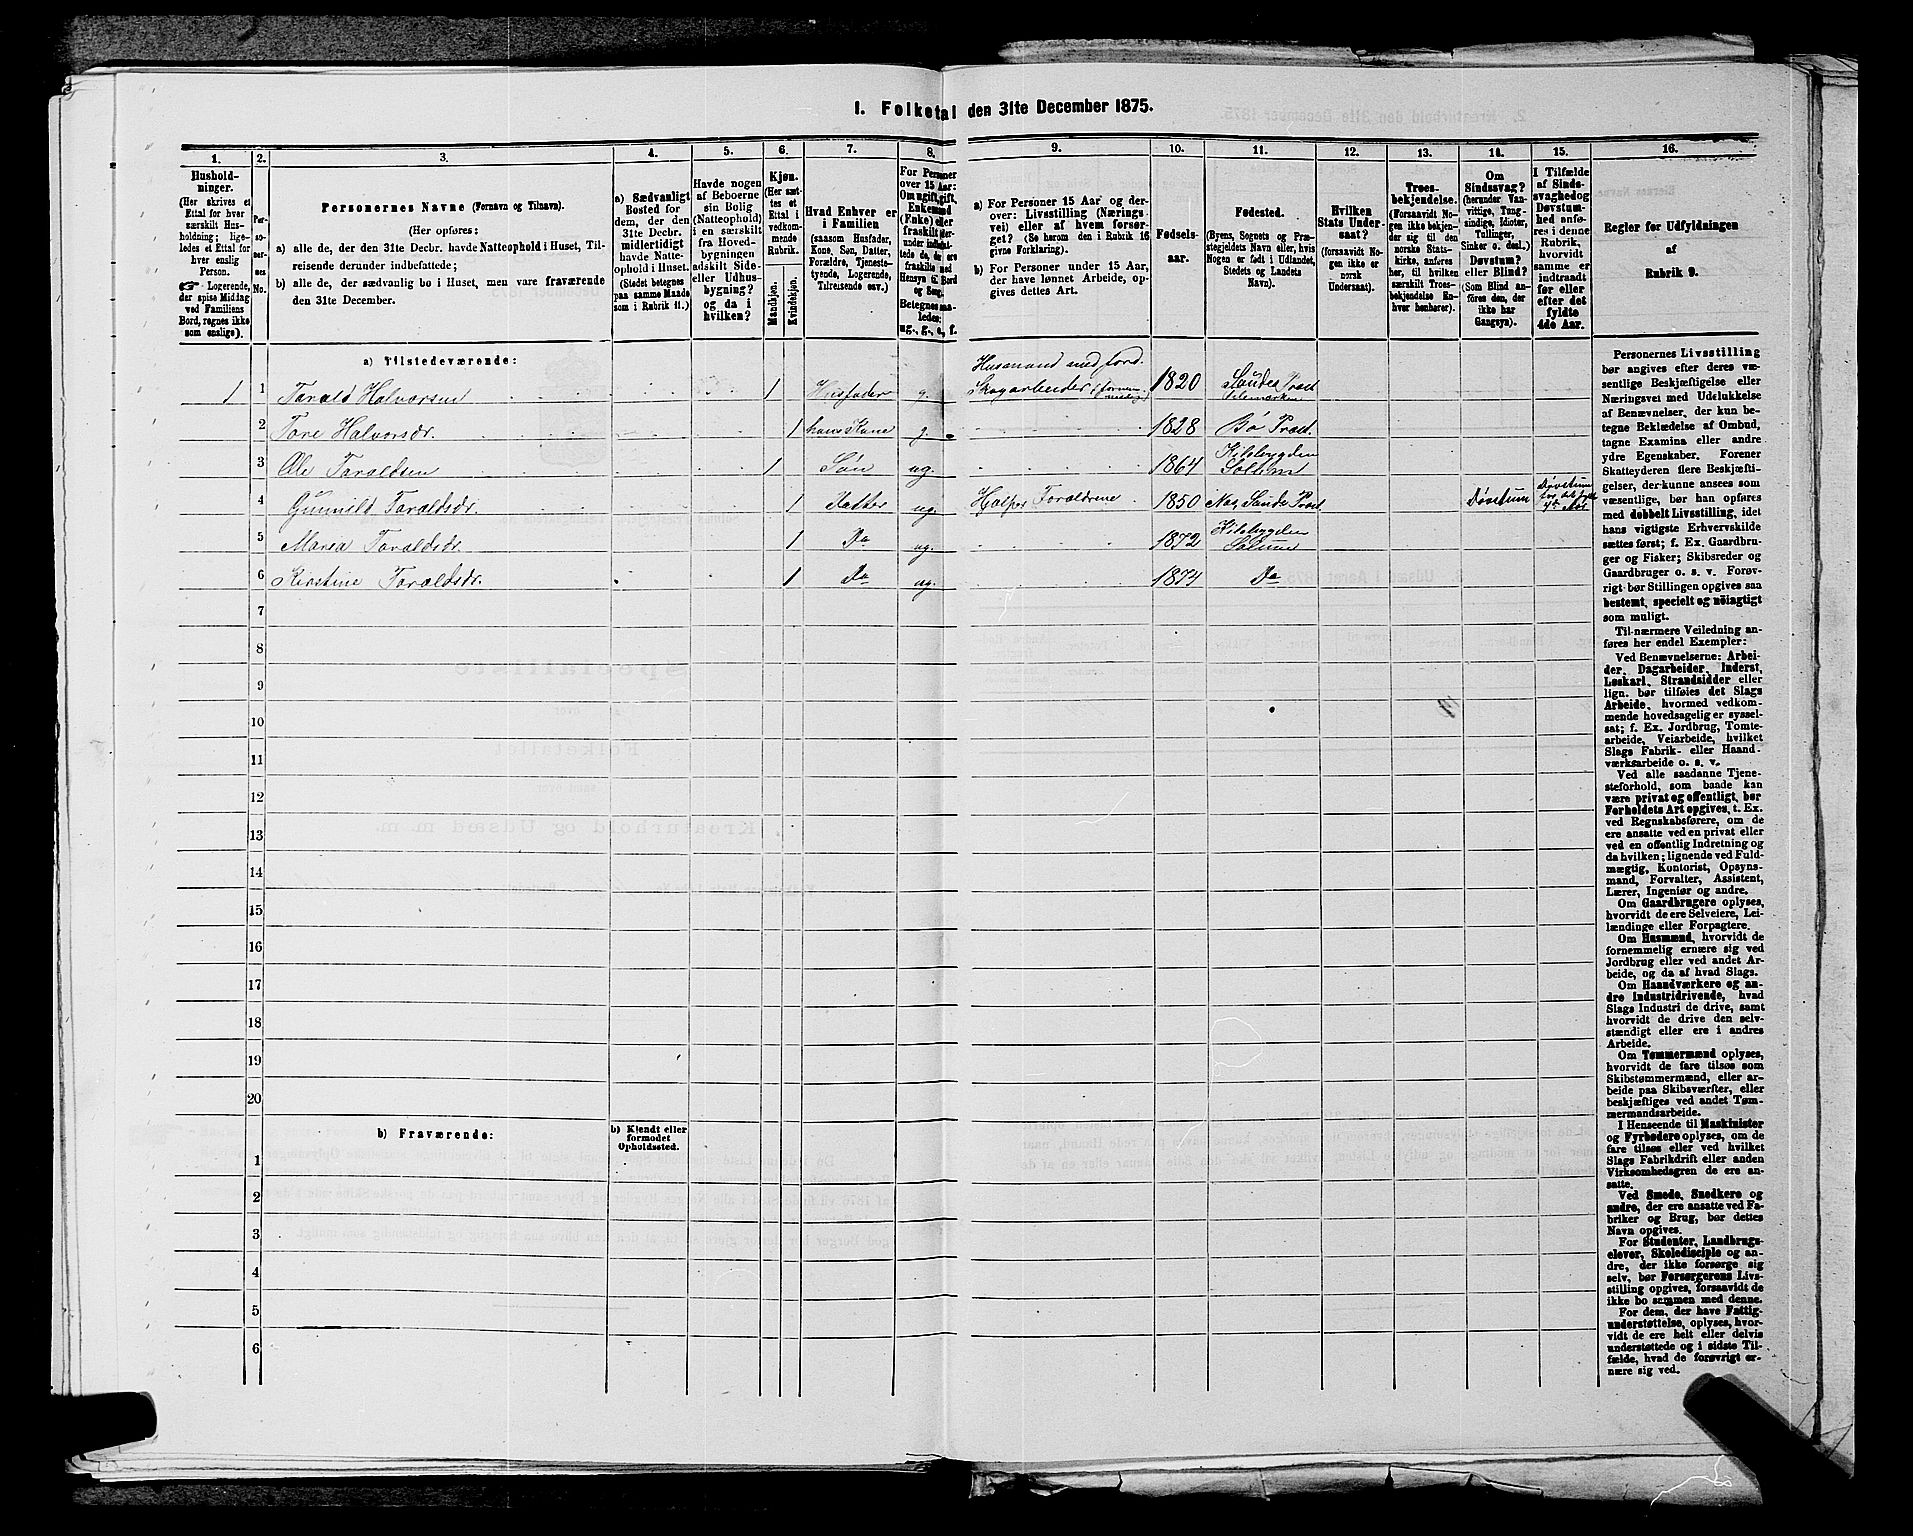 1. Folketal den 31te December 1875.
1. 2. 3. 4. 5. 6. 7. 8. 9. 10. 11. 12. 13. 14. 15. 16.
Hushold-
ninger.
(Her skrives et
Ettal for hver
særskilt Hus-
holdning; lige-
ledes et Ettal for
hver enslig
Person.
☞ Logerende,
der spise Middag
ved Familiens
Bord, regnes ikke
som enslige).
Per-
so-
ner-
nes
No.
Personernes Navne (Fornavn og Tilnavn).
(Her opføres:
a) alle de, der den 31te Decbr. havde Natteophold i Huset, Til-
reisende derunder indbefattede;
b) alle de, der sædvanlig bo i Huset, men vare fraværende
den 31te December.
a) Sædvanligt
Bosted for
dem, der den
31te Decbr.
midlertidigt
havde Natte-
ophold i Huset.
(Stedet betegnes
paa samme Maade
som i Rubrik 11.)
Havde nogen
af Beboerne
sin Bolig
(Natteophold)
i en særskilt
fra Hoved-
bygningen
adskilt Side-
eller Udhus-
bygning?
og da i
hvilken?
Kjøn.
(Her sæt-
tes et
Ettal i
vedkom-
mende
Rubrik.
Mandkjøn.
Kvindekjøn.
Hvad Enhver er
i Familien
(saasom Husfader,
Kone, Søn, Datter,
Forældre, Tjeneste-
tyende, Logerende,
Tilreisende osv.)
For Personer
over 15 Aar:
Om ugift, gift,
Enkemand
(Enke) eller
fraskilt
Betegnes saa-
ledes:
ug., g., e, f.
a) For Personer 15 Aar og der-
over: Livsstilling (Nærings-
vei) eller af hvem forsør-
get? (Se herom den i Rubrik 16
givne Forklaring).
b) For Personer under 15 Aar,
der have lønnet Arbeide, op-
gives dettes Art.
Fødsels-
aar.
Fødested.
(Byens, Sognets og Præ-
stegjeldets Navn eller, hvis
Nogen er født i Udlandet,
Stedets og Landets
Navn).
Hvilken
Stats Under-
saat?
(forsaavidt No-
gen ikke er
norsk
Undersaat).
Troes-
bekjendelse.
(Forsaavidt No-
gen ikke bekjen-
der sig til den
norske Stats-
kirke, anføres
her, til hvilken
særskilt Troes-
bekjendelse En-
hver henhører).
Om
Sindssvag?
(herunder Van-
vittige, Tung-
sindige, Idioter,
Tullinger,
Sinker o. desl.)
Døvstum?
eller Blind?
(Som Blind an-
føres den, der
ikke har
Gangsyn).
I Tilfælde
af Sinds-
svaghed og
Døvstum-
hed anfø-
res i denne
Rubrik,
hvorvidt
samme er
indtraadt
før eller
efter det
fyldte
4de Aar.
Regler for Udfyldningen
af
Rubrik 9.
a) Tilstedeværende:
1 1 Tarald Halvorsen 1 Husfader g. Husmand med Jord. Skogarbeider 1820 Saudes Præst. Telemarken
2 Tone Halvorsdr. 1 hans Kone g. 1828 Bø Præst.
3 Ole Taraldsen 1 Søn ug. 1864 Kilebygden Solum
4 Gunnild Taraldsdr. 1 Datter ug. Hjelper Forældrene 1850 Saude Præst. Døvstum Døvstum
5 Maria Taraldsdr. 1 Do ug. 1872 Kilebygden Solum
6 Kirstine Taraldsdr. 1 Do ug. 1874 Do
7
8
9
10
11
12
13
14
15
16
17
18
19
20
b) Fraværende:
b) Kjendt eller
formodet
Opholdssted.
1
2
3
4
5
6
Personernes Livsstilling
bør angives efter deres væ-
sentlige Beskjæftigelse eller
Næringsvei med Udelukkelse
af Benævnelser, der kun be-
tegne Beklædelse af Ombud,
tagne Examina eller andre
ydre Egenskaber. Forener
Skatteyderen flere Beskjæfti-
gelser, der kunne ansees som
væsentlige, bør han opføres
med dobbelt Livsstilling, idet
hans vigtigste Erhvervskilde
sættes først; f. Ex. Gaardbru-
ger og Fisker; Skibsreder og
Gaardbruger o. s. v. Forøv-
rigt bør Stillingen opgives saa
bestemt, specielt og nøiagtigt
som muligt.
Til nærmere Veiledning an-
føres her endel Exempler:
Ved Benævnelserne: Arbei-
der, Dagarbeider, Inderst,
Løskarl, Strandsidder eller
lign. bør tilføies det Slags
Arbeide, hvormed vedkom-
mende hovedsagelig er syssel-
sat; f. Ex. Jordbrug, Tomte-
arbeide, Veiarbeide, hvilket
Slags Fabrik- eller Haand-
værksarbeide o. s. v.
Ved alle saadanne Tjene-
steforhold, som baade kan
være privat og offentligt, bør
Forholdets Art opgives, t. Ex.
ved Regnskabsførere, om de
ere ansatte ved en privat eller
ved en offentlig Indretning og
da hvilken; lignende ved Fuld-
mægtig, Kontorist, Opsyns-
mand, Forvalter, Assistent,
Lærer, Ingeniør og andre.
Om Gaardbrugere oplyses,
hvorvidt de ere Selveiere, Lei-
lændinge eller Forpagtere.
Om Husmænd, hvorvidt de
fornemmelig ernære sig ved
Jordbrug eller ved andet Ar-
beide, og da af hvad Slags.
Om Haandværkere og an-
dre Industridrivende, hvad
Slags Industri de drive, samt
hvorvidt de drive den selv-
stændigt eller ere i andres
Arbeide.
Om Tømmermænd oplyses,
hvorvidt de fare tilsøs som
Skibstømmermænd, eller ar-
beide paa Skibsværfter, eller
beskjæftiges ved andet Tøm-
mermandsarbeide.
I Henseende til Maskinister
og Fyrbødere oplyses, om de
fare tilsøs eller ved hvilket
Slags Fabrikdrift eller anden
Virksomhedsgren de ere an-
satte.
Ved Smede, Snedkere og
andre, der ere ansatte ved Fa-
briker og Brug, bør dettes
Navn opgives.
For Studenter, Landbrugs-
elever, Skoledisciple og an-
dre, der ikke forsørge sig
selv, bør Forsørgerens Livs-
stilling opgives, forsaavidt de
ikke bo sammen med denne.
For dem, der have Fattig-
understøttelse, oplyses, hvor-
vidt de ere helt eller delvis
understøttede og i sidste Til-
fælde, hvad de forøvrigt er-
nære sig ved.